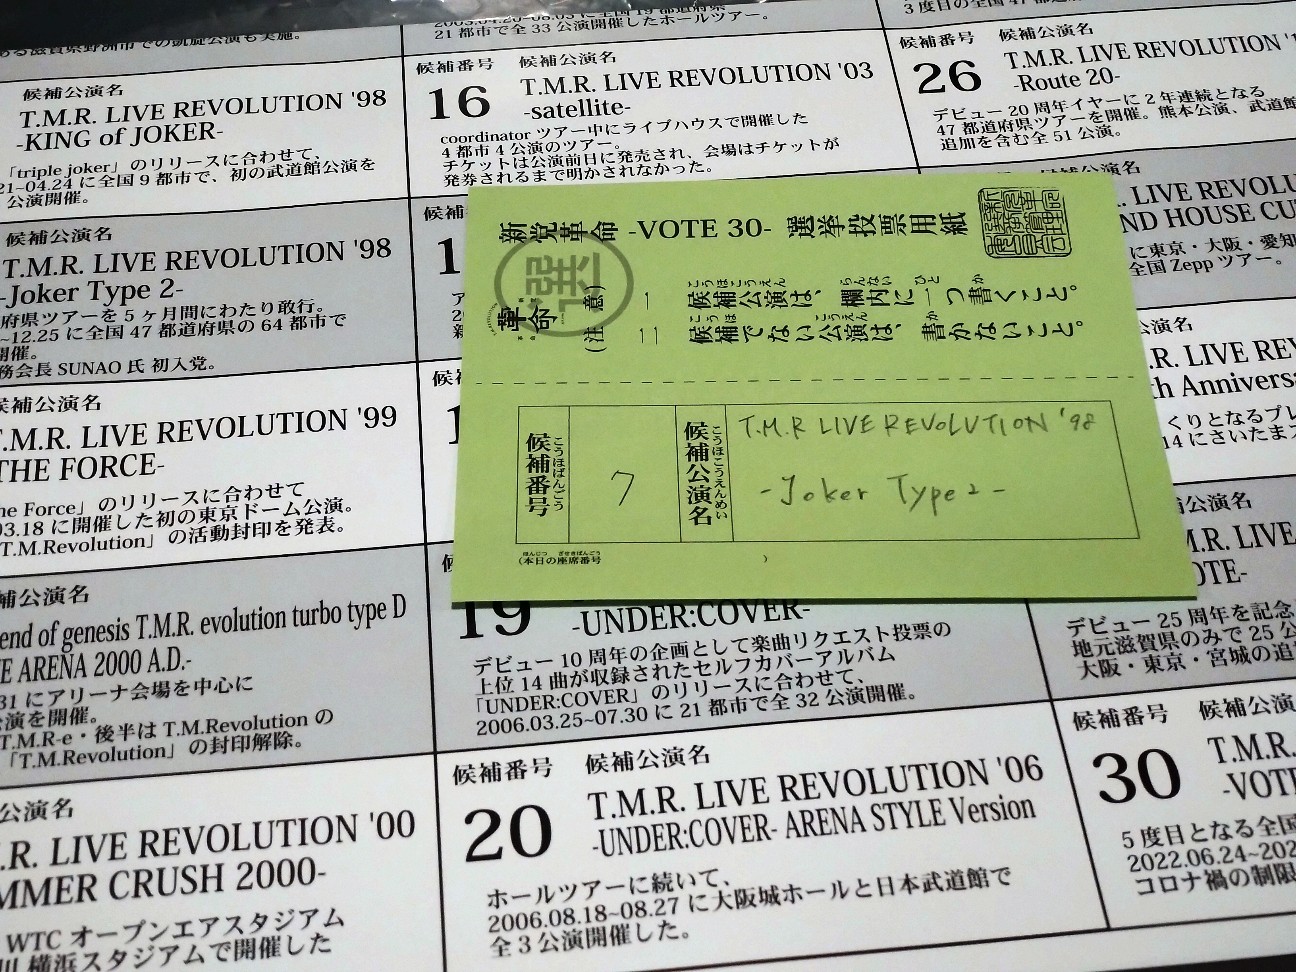 ある滋賀県野洲市での凱旋公演も実施。
候補公演名
T.M.R. LIVE REVOLUTION '98
-KING of JOKER-
「triple joker」のリリースに合わせて、
21~04.24 に全国 9 都市で、初の武道館公演を
公演開催。
候補公演名
T.M.R. LIVE REVOLUTION '98
-Joker Type 2-
府県ツアーを 5 ヶ月間にわたり敢行。
~12.25 に全国 47 都道府県の 64 都市で
開催。
務会長 SUNAO 氏 初入党。
候補公演名
T.M.R. LIVE REVOLUTION '99
THE FORCE-
he Force」のリリースに合わせて
03.18 に開催した初の東京ドーム公演。
「T.M.Revolution」の活動封印を発表。
補公演名
end of genesis T.M.R. evolution turbo type D
E ARENA 2000 A.D.-
31 にアリーナ会場を中心に
公演を開催。
T.M.R-e・後半は T.M.Revolution の
「T.M.Revolution」の封印解除。
公演名
.R. LIVE REVOLUTION '00
MMER CRUSH 2000-
WTC オープンエアスタジアム
横浜スタジアムで開催した
21 都市で全 33 公演開催したホールツアー。
候補番号 候補公演名
16 T.M.R. LIVE REVOLUTION '03
-satellite-
coordinator ツアー中にライブハウスで開催した
4 都市 4 公演のツアー。
チケットは公演前日に発売され、会場はチケットが
発券されるまで明かされなかった。
新党革命 -VOTE 30- 選挙投票用紙
選
革命
(注意)
一 候補公演は、欄内に一つ書くこと。
こうほこうえん らんない ひと か
二 候補でない公演は、書かないこと。
こうほ こうえん か
候補番号
こうほばんごう
7
候補公演名
こうほこうえんめい
T.M.R LIVE REVOLUTION '98
-Joker Type2-
ほんじつ ざせきばんごう
(本日の座席番号 )
19 -UNDER:COVER-
デビュー 10 周年の企画として楽曲リクエスト投票の
上位 14 曲が収録されたセルフカバーアルバム
「UNDER:COVER」のリリースに合わせて、
2006.03.25~07.30 に 21 都市で全 32 公演開催。
候補番号 候補公演名
20 T.M.R. LIVE REVOLUTION '06
-UNDER:COVER- ARENA STYLE Version
ホールツアーに続いて、
2006.08.18~08.27 に大阪城ホールと日本武道館で
全 3 公演開催した。
3 度目の全国 47 都道
候補番号 候補公演名
26 T.M.R. LIVE REVOLUTION '1
-Route 20-
デビュー 20 周年イヤーに 2 年連続となる
47 都道府県ツアーを開催。熊本公演、武道館
追加を含む全 51 公演。
候補公演名
. LIVE REVOLU
ND HOUSE CU
に東京・大阪・愛知
全国 Zepp ツアー。
公演名
.R. LIVE REV
th Anniversa
くりとなるプレ
14 にさいたまス
公演名
M.R. LIVE
OTE-
デビュー 25 周年を記念
地元滋賀県のみで 25 公
大阪・東京・宮城の追
候補番号 候補公演
30 T.M.R.
-VOT
5 度目となる全国
2022.06.24~202
コロナ禍の制限